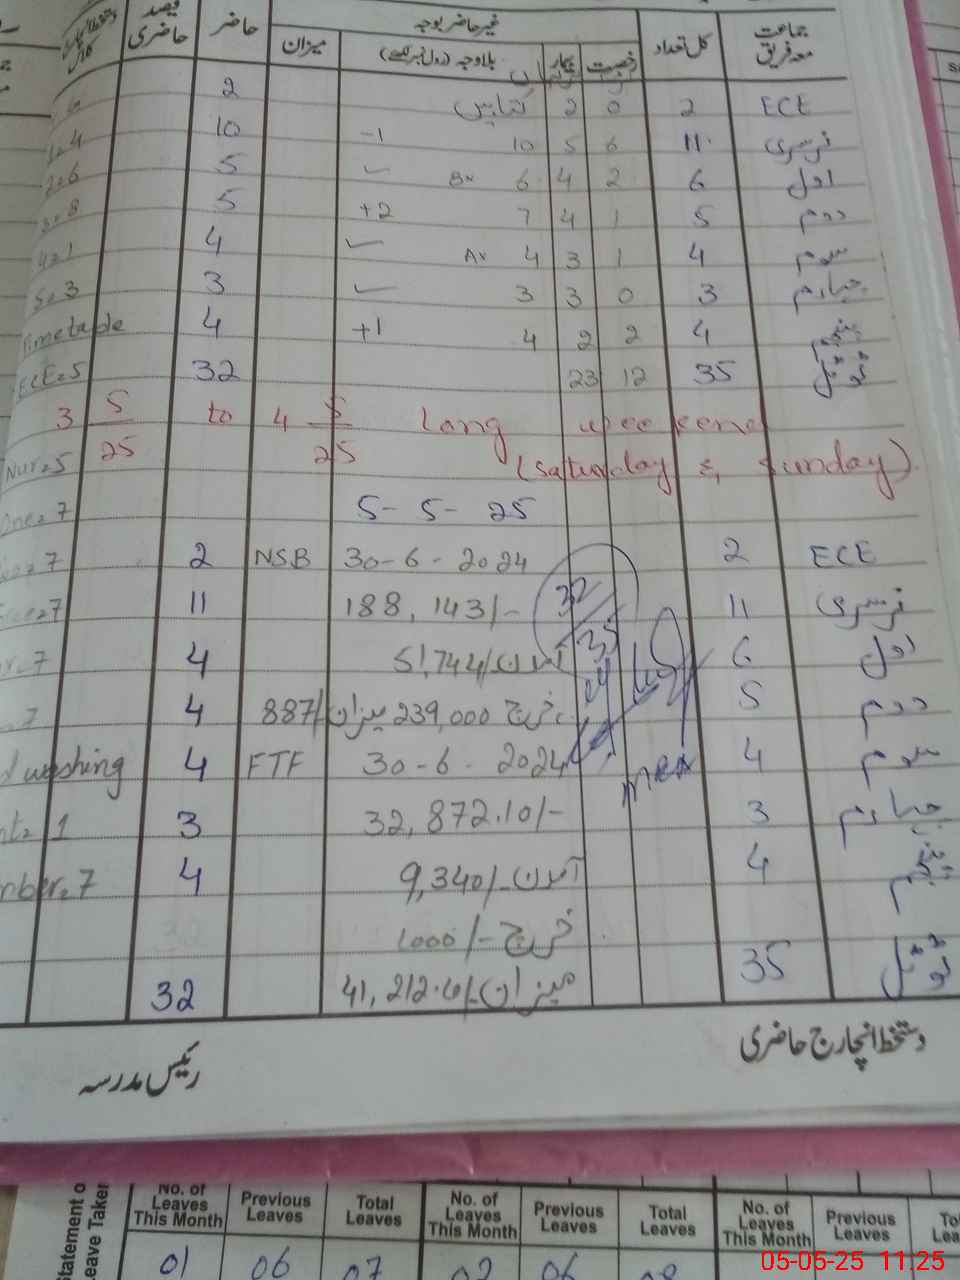 جماعت معہ فریق کل تعداد غیر حاضر بوجہ حاضر فیصد حاضری
رخصت بیمار بلاوجہ (رول نمبر لکھیے) میزان
ECE 2 0 2 کتابیں 2
نرسری 11 6 5 10 -1 10
اول 6 2 4 6 ✓ 5 2=6
دوم 5 1 4 7 +2 5 3=8
سوم 4 1 3 4 ✓ 4 4=1
چہارم 3 0 3 3 ✓ 3 5=3
پنجم 4 2 2 4 +1 4 Timetable
ٹوٹل 35 12 23 32 ECE=5
3 5/25 to 4 5/25 Long weekend
(Saturday & Sunday)
Nur=5
5-5-25
One=7
ECE 2 30-6-2024 NSB 2
نرسری 11 32/35 188,143/- 11
اول 6 آمدن 51,744/- 4
دوم 5 خرچ 239,000 میزان 887/- 4
سوم 4 30-6-2024 FTF 4 washing
چہارم 3 32,872.10/- 3
پنجم 4 آمدن 9,340/- 4
خرچ 1000/-
ٹوٹل 35 میزان 32
دستخط انچارج حاضری
رئیس مدرسہ
Statement of Leave Taken
No. of Leaves This Month Previous Leaves Total Leaves No. of Leaves This Month Previous Leaves Total Leaves No. of Leaves This Month Previous Leaves
01 06 07 02 06 08
05-05-25 11:25